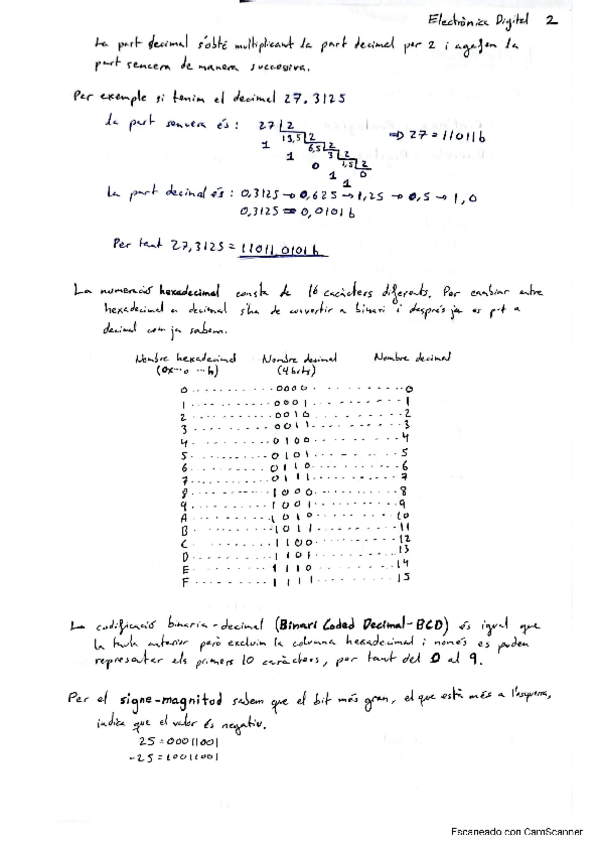 Electrònica Digital 2
La part decimal s'obté multiplicant la part decimal per 2 i agafem la
part sencera de manera successiva.
Per exemple si tenim el decimal 27.3125
la part sencera és: 27 | 2
⇒ 27 = 11011b
13,5 | 2
1
6,5 | 2
1
3 | 2
0
1,5 | 2
1
0
1
La part decimal és: 0,3125 → 0,625 → 1,25 → 0,5 → 1,0
0,3125 ⇒ 0,0101b
Per tant 27,3125 = 11011,0101b
La numeració hexadecimal consta de 16 caràcters diferents. Per cambiar entre
hexadecimal a decimal s'ha de convertir a binari i després ja es pot a
decimal com ja sabem.
Nombre hexadecimal Nombre decimal Nombre decimal
(0x...o ...h) (4 bits)
0 0000 0
1 0001 1
2 0010 2
3 0011 3
4 0100 4
5 0101 5
6 0110 6
7 0111 7
8 1000 8
9 1001 9
A 1010 10
B 1011 11
C 1100 12
D 1101 13
E 1110 14
F 1111 15
La codificació binaria-decimal (Binari Coded Decimal-BCD) és igual que
la taula anterior però excluim la columna hexadecimal i només es poden
representar els primers 10 caràcters, per tant del 0 al 9.
Per el signe-magnitod sabem que el bit més gran, el que està més a l'esquerra,
indica que el valor és negatiu.
25 = 00011001
-25 = 10011001
Escaneado con CamScanner